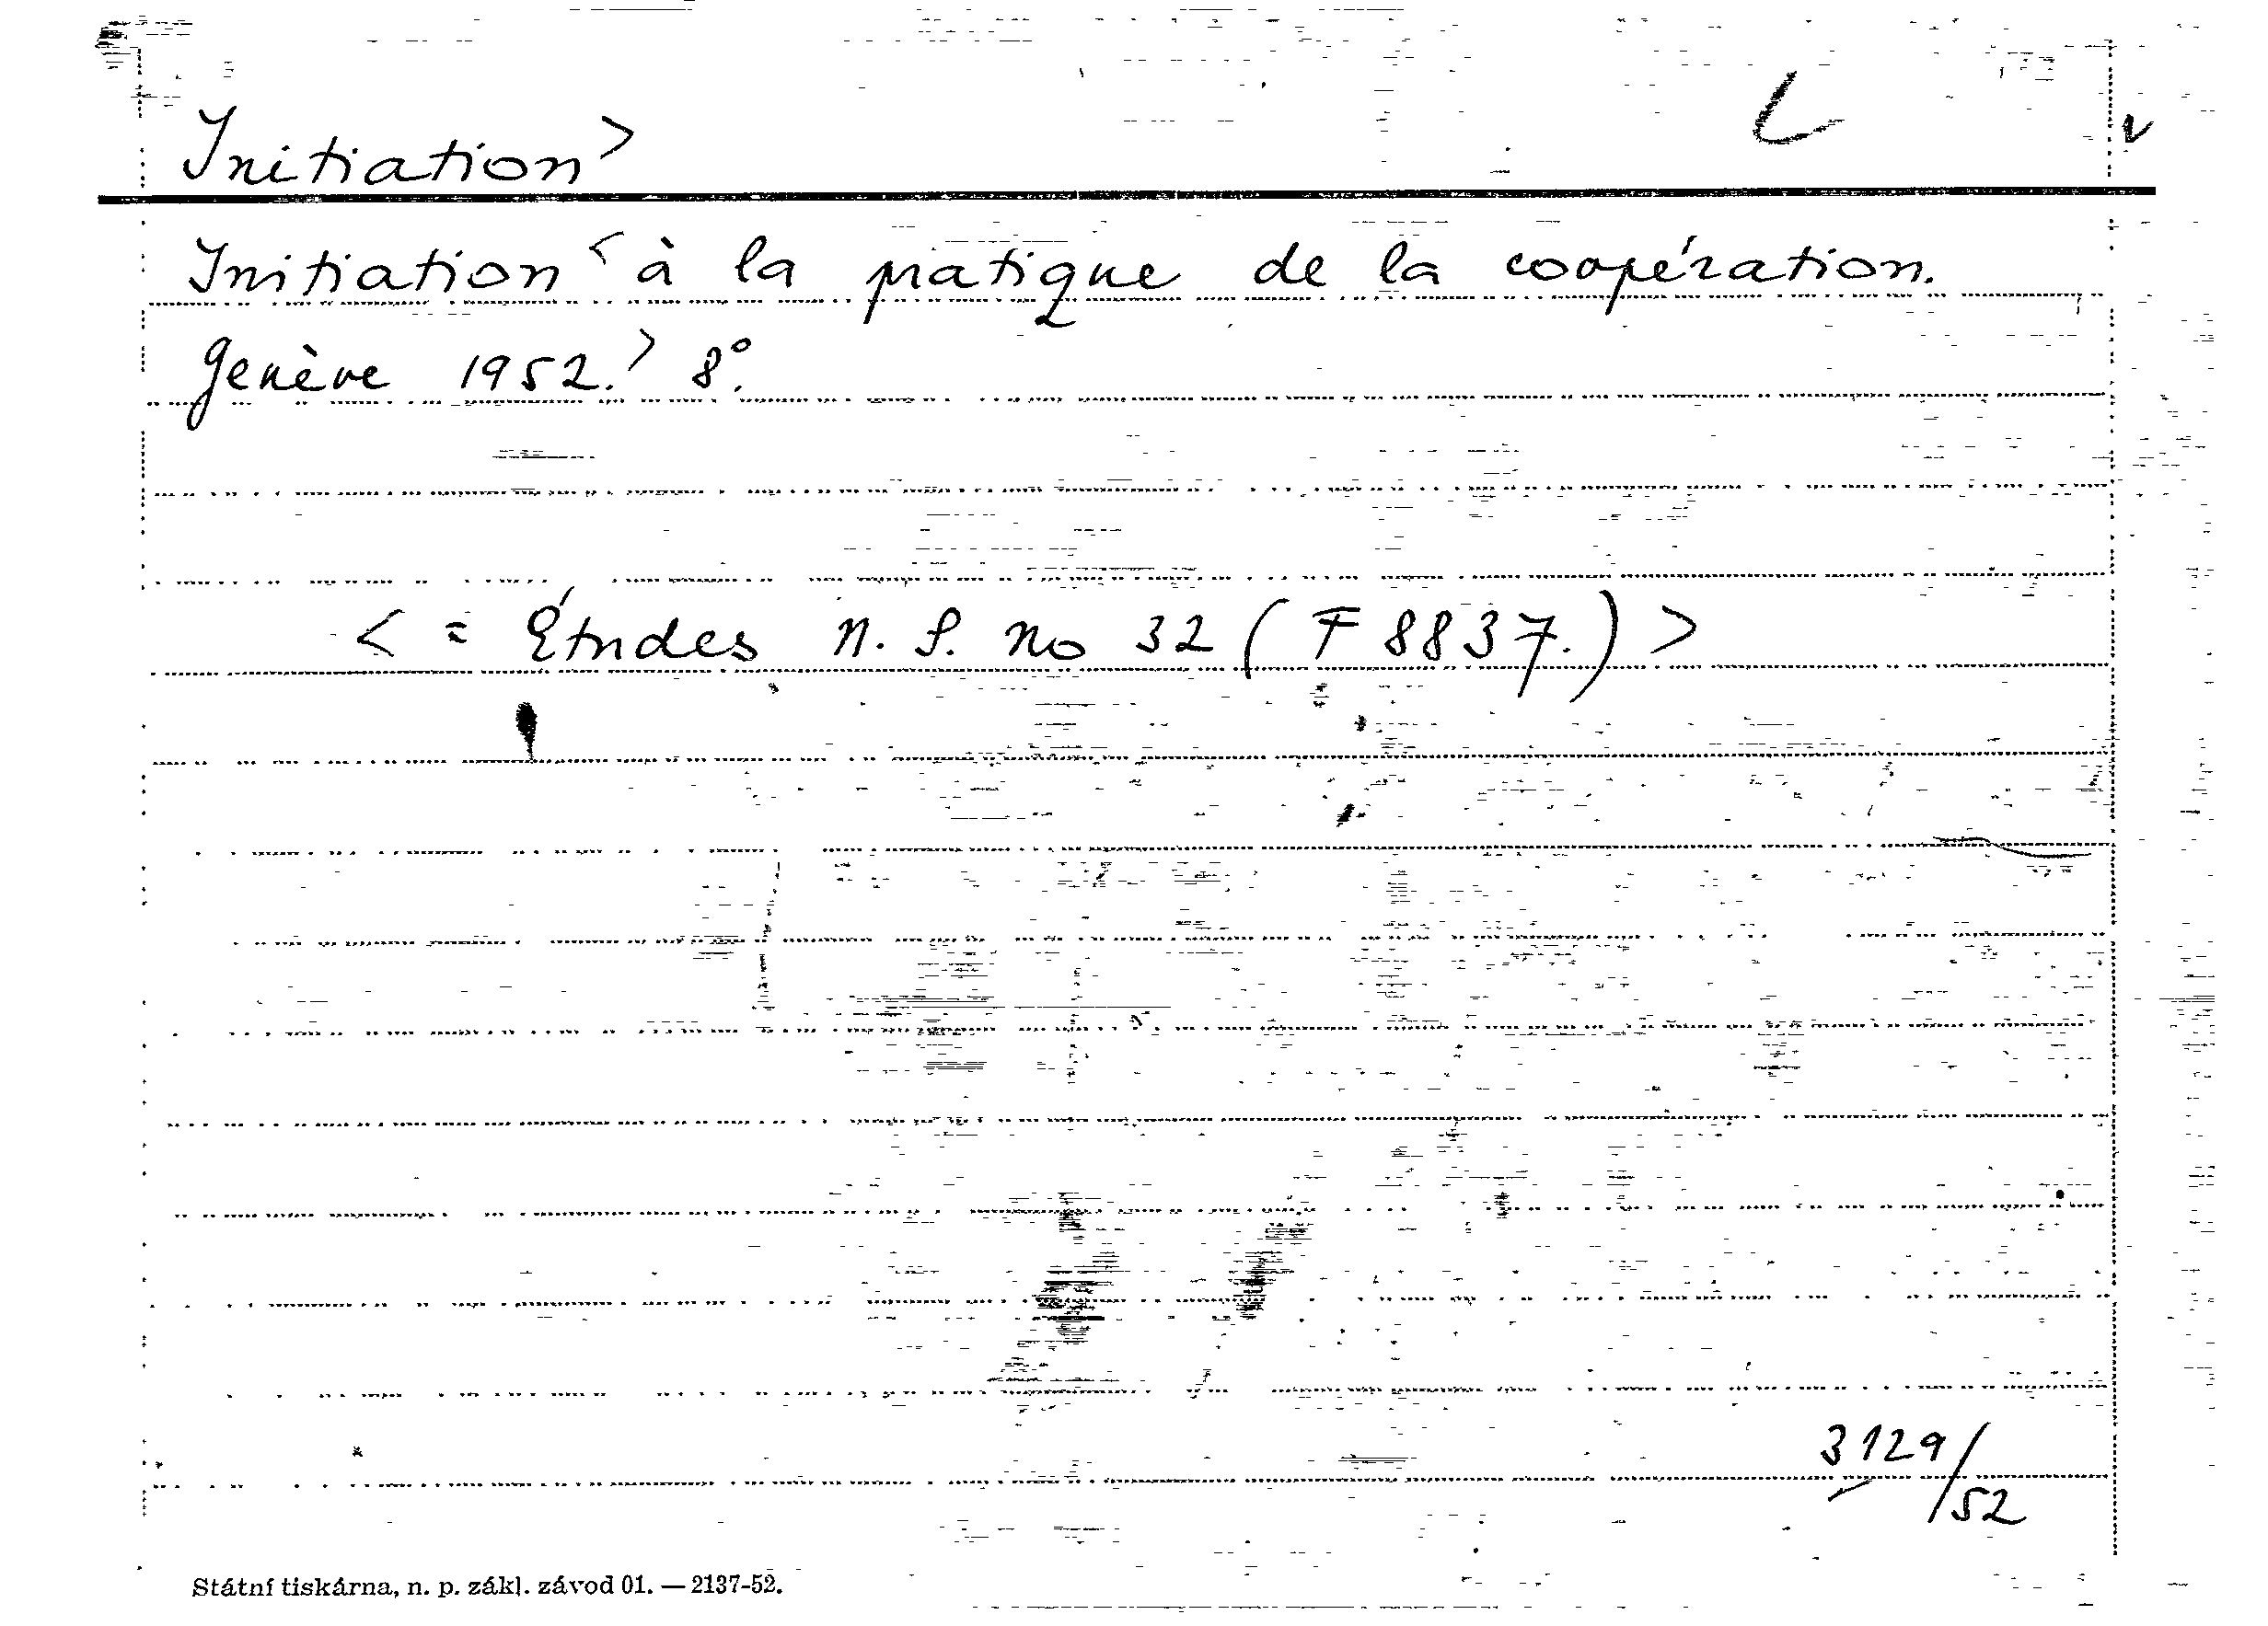 Initiation>
Initiation< à la pratique de la coopération.
Genève 1952.> 8°.
< = Études n. S. no 32 ( F 8837.) >
3129/52
Státní tiskárna, n. p. zákl. závod 01. — 2137-52.